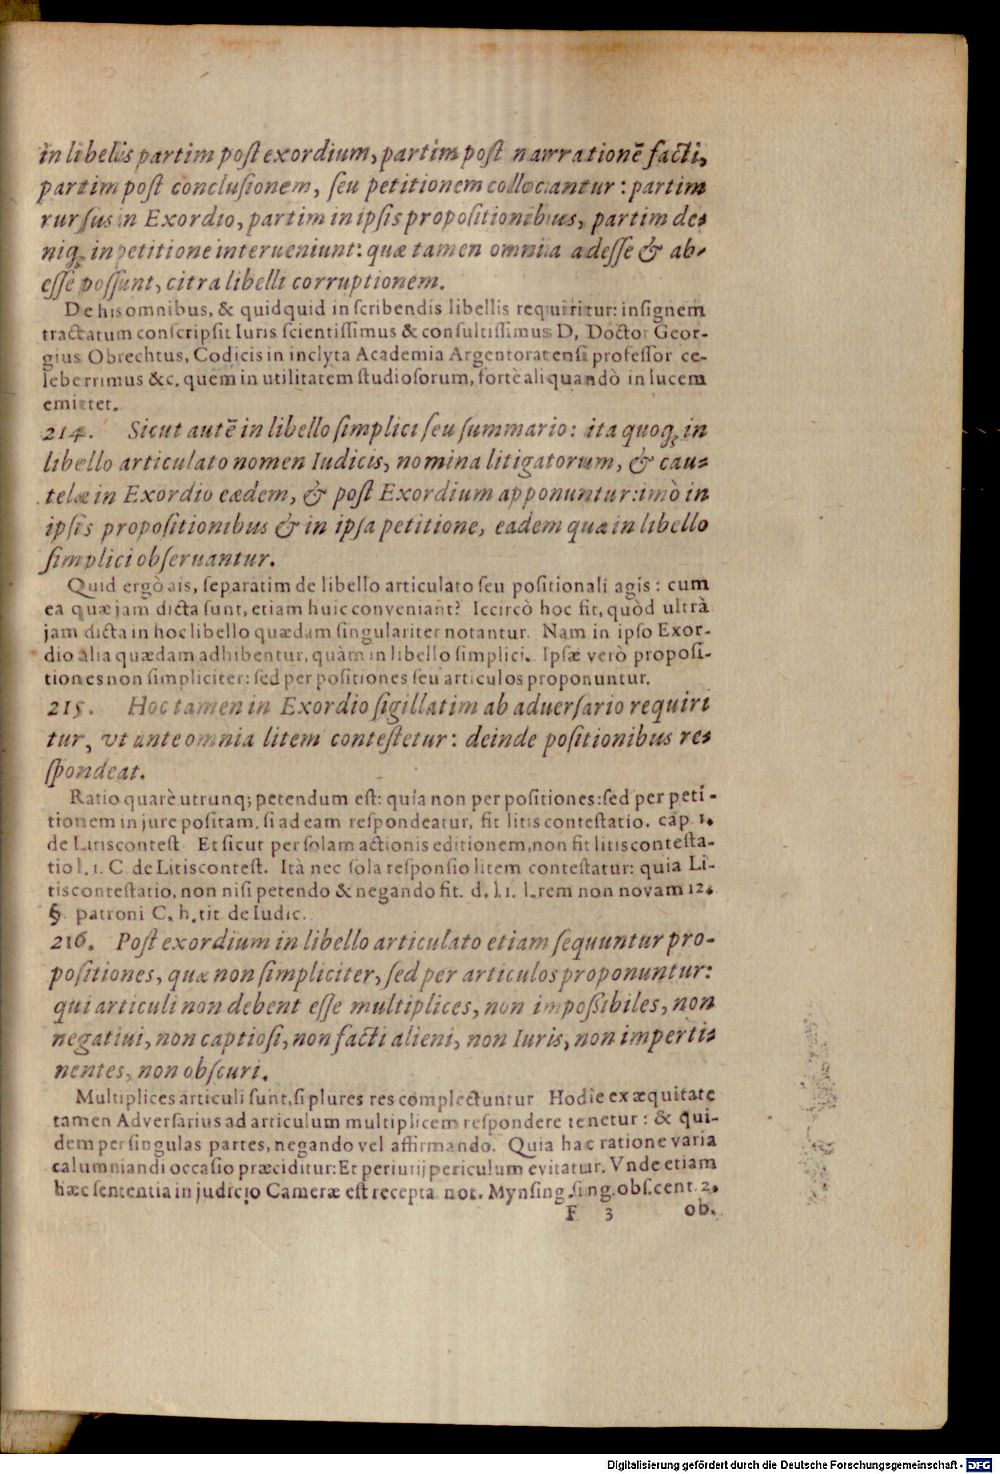 in libellis partim post exordium, partim post narrationē facti,
partim post conclusionem, seu petitionem collocantur: partim
rursus in Exordio, partim in ipsis propositionibus, partim de-
niq; in petitione interueniunt: quæ tamen omnia adesse & ab-
esse possunt, citra libelli corruptionem.
De his omnibus, & quidquid in scribendis libellis requiritur: insignem
tractatum conscripsit Iuris scientissimus & consultissimus D, Doctor Geor-
gius Obrechtus, Codicis in inclyta Academia Argentoratensi professor ce-
leberrimus &c. quem in utilitatem studiosorum, fortè aliquandò in lucem
emittet.
214. Sicut autē in libello simplici seu summario: ita quoq; in
libello articulato nomen Iudicis, nomina litigatorum, & cau-
telæ in Exordio eædem, & post Exordium apponuntur: imò in
ipsis propositionibus & in ipsa petitione, eadem quæ in libello
simplici obseruantur.
Quid ergò ais, separatim de libello articulato seu positionali agis: cum
ea quæ jam dicta sunt, etiam huic conveniant? Iccircò hoc fit, quòd ultrà
jam dicta in hoc libello quædam singulariter notantur. Nam in ipso Exor-
dio alia quædam adhibentur, quàm in libello simplici. Ipsæ verò proposi-
tiones non simpliciter: sed per positiones seu articulos proponuntur.
215. Hoc tamen in Exordio sigillatim ab aduersario requiri
tur, vt ante omnia litem contestetur: deinde positionibus re-
spondeat.
Ratio quarè utrunq; petendum est: quia non per positiones: sed per peti-
tionem in jure positam, si ad eam respondeatur, fit litis contestatio. cap 1.
de Litiscontest. Et sicut per solam actionis editionem, non fit litiscontesta-
tio l. 1. C. de Litiscontest. Ità nec sola responsio litem contestatur: quia Li-
tiscontestatio, non nisi petendo & negando fit. d. l. 1. l. rem non novam 12.
§. patroni C. h. tit. de Iudic.
216. Post exordium in libello articulato etiam sequuntur pro-
positiones, quæ non simpliciter, sed per articulos proponuntur:
qui articuli non debent esse multiplices, non impossibiles, non
negatiui, non captiosi, non facti alieni, non Iuris, non imperti-
nentes, non obscuri.
Multiplices articuli sunt, si plures res complectuntur Hodie ex æquitate
tamen Adversarius ad articulum multiplicem respondere tenetur: & qui-
dem per singulas partes, negando vel affirmando. Quia hac ratione varia
calumniandi occasio præciditur: Et periurij periculum evitatur. Vnde etiam
hæc sententia in judicio Cameræ est recepta not. Mynsing. sing. obs. cent. 2.
F 3 ob.
Digitalisierung gefördert durch die Deutsche Forschungsgemeinschaft - DFG